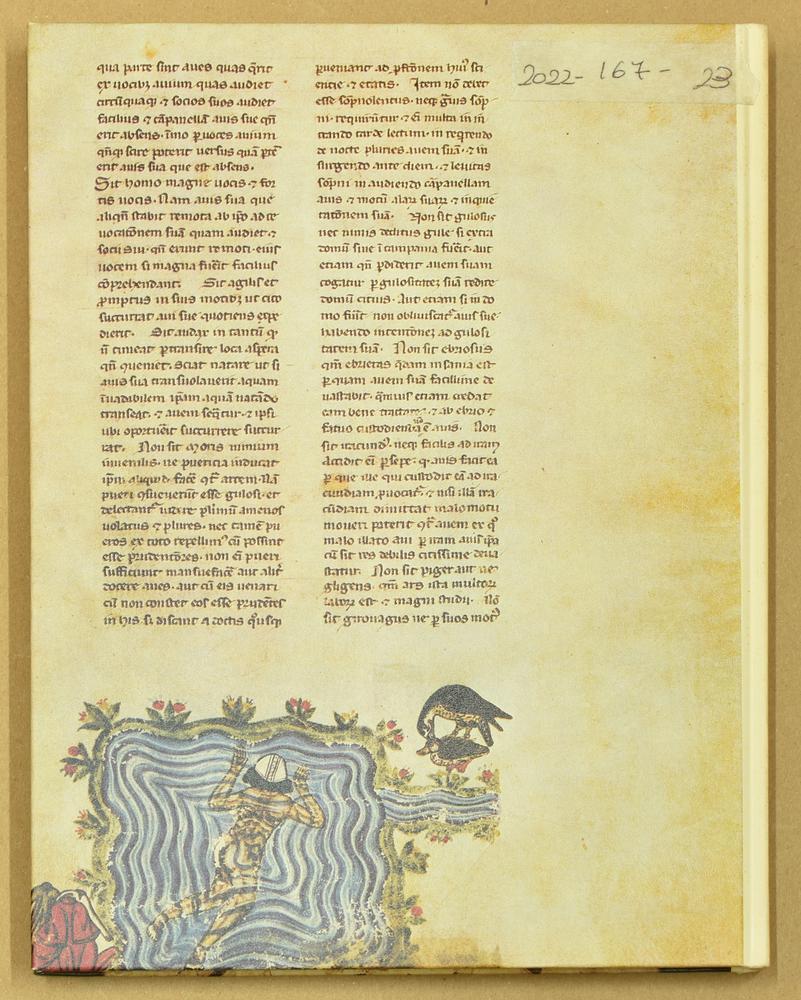 qua parte sint aues quas q̄rit
ex uocibꝫ auium quas audiet
circūquaqꝫ ⁊ socios suos audiet
facilius ⁊ cāpanellā auis sue qn̄
erit absens. īmo ꝑ uoces auium
qn̄qꝫ scire poterit uersus quā ꝑtē
erit auis sua que est absens.
Sit homo magne uocis ⁊ for
tis uocis. Nam auis sua que
aliqn̄ stabit remota ab ip̄o ad re
uocatōnem suā quam audiet ⁊
socii sui qn̄ erunt remoti eius
uocem si magna fūit facilius
cōprehendant. Sit agilis et
promptus in suis motibꝫ ut cito
succurrat aui sue quotiens expe
dierit. Sit audax in tantū qꝫ
nō timeat ꝑtransire loca aspera
qn̄ queniet. Sciat natare ut si
auis sua transuolauerit aquam
īuadibilem ip̄am aquā natādo
transeat. ⁊ auem seq̄tur ⁊ ipsi
ubi oportuerit succurrere succur
rat. Non sit etatis nimium
iuuenilis. ne puericia inducat
ip̄m aliquid facē contra artem. Nā
pueri ꝯsueuerūt esse gulosi. et
delectant᷑ uidere plurimū amenos
uolatus ⁊ plures. nec tamē pu
eros ex toto repellim᷒ cū possint
esse prudentōres. non em̄ pueri
sufficiunt mansuefacē aut alit̄
docere aues. aut cū eis uenari
cū non constet eos esse prudētes
in his. si discant a doctis qousqꝫ
ꝑueniant ad ꝑfctōnem hui᷒ sci
encie ⁊ etatis. Item nō debet
esse sōpnolentus. neqꝫ g̃uis sōp
ni. requirūtur ⁊ em̄ multa in in
trando tarde lectum. in reqrendo
de nocte pluries auem suā. ⁊ in
surgendo ante diem. ⁊ leuitas
sōpni in audiendo cāpanellam
auis ⁊ motū alarꝫ suarꝫ ⁊ inquie
tatōnem suā. Non sit gulosus
nec nimis deditus gule. si extra
domū siue ī campania fūerit. aut
etiam qn̄ ꝑdiderit auem suam
cogatur ꝑ gulositatē suā redire
domū citius. Aut etiam si in do
mo fūit non obliuiscat᷑ auis sue
habendo intentōnē ad gulosi
tatem suā. Non sit ebriosus
qm̄ ebrietas q̄dam insania est
ꝑ quam auem suā facillime de
uastabit. qmuis etiam credat
eam bene tractare. ⁊ ab ebrio ⁊
fatuo custodienda nō ē auis. Non
sit iracund᷒. neqꝫ facilis ad iram
Accidit em̄ ꝑsepe. qꝫ auis facit ea
ꝑ que ille qui custodit eā ad ira
cundiam ꝓuocat᷑. ⁊ nisi illā ira
cūdiam dimittat malo motu
moueri poterit contra auem ex q̊
malo illato aui ꝑ iram auis ip̄a
cū sit res debilis citissime deua
statur. Non sit piger aut ne
gligens. qm̄ ars ista multorꝫ
laborꝫ est ⁊ magni studii. Nō
sit girouagus ne ꝑ suos mot᷒
2022-167-23